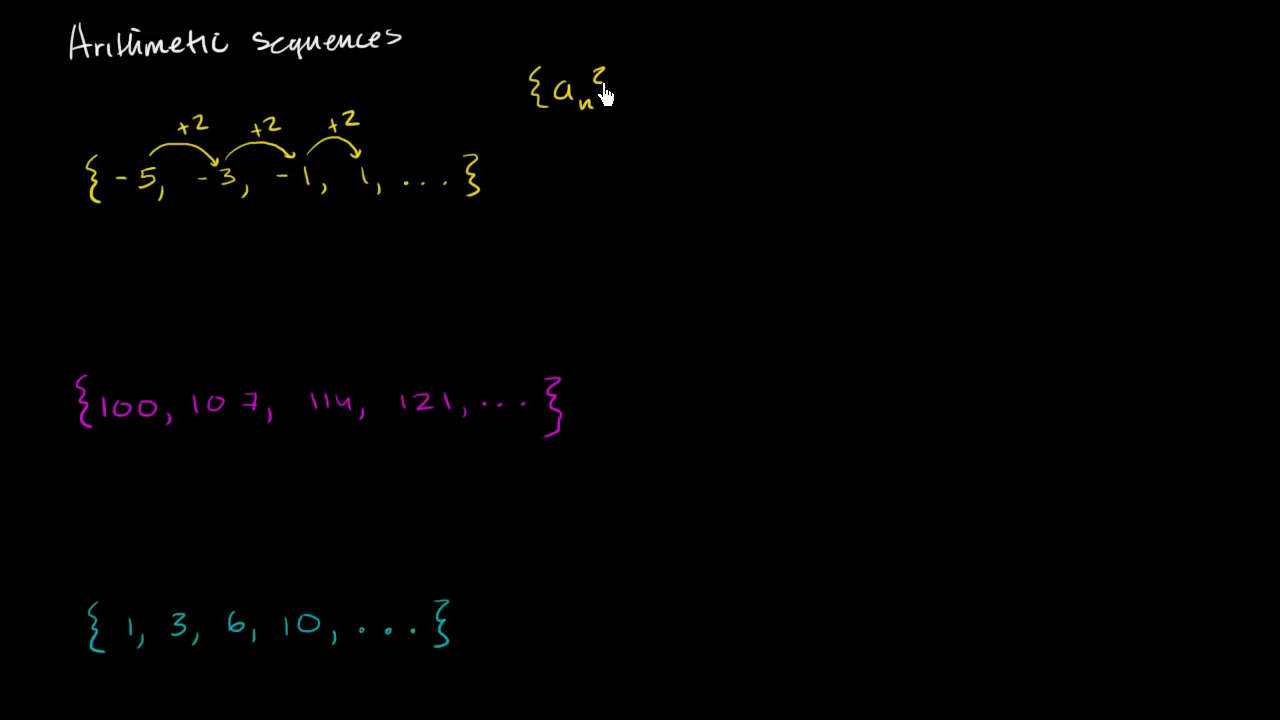 Arithmetic sequences
{a_n}
+2 +2 +2
{-5, -3, -1, 1, ...}
{100, 107, 114, 121, ...}
{1, 3, 6, 10, ...}